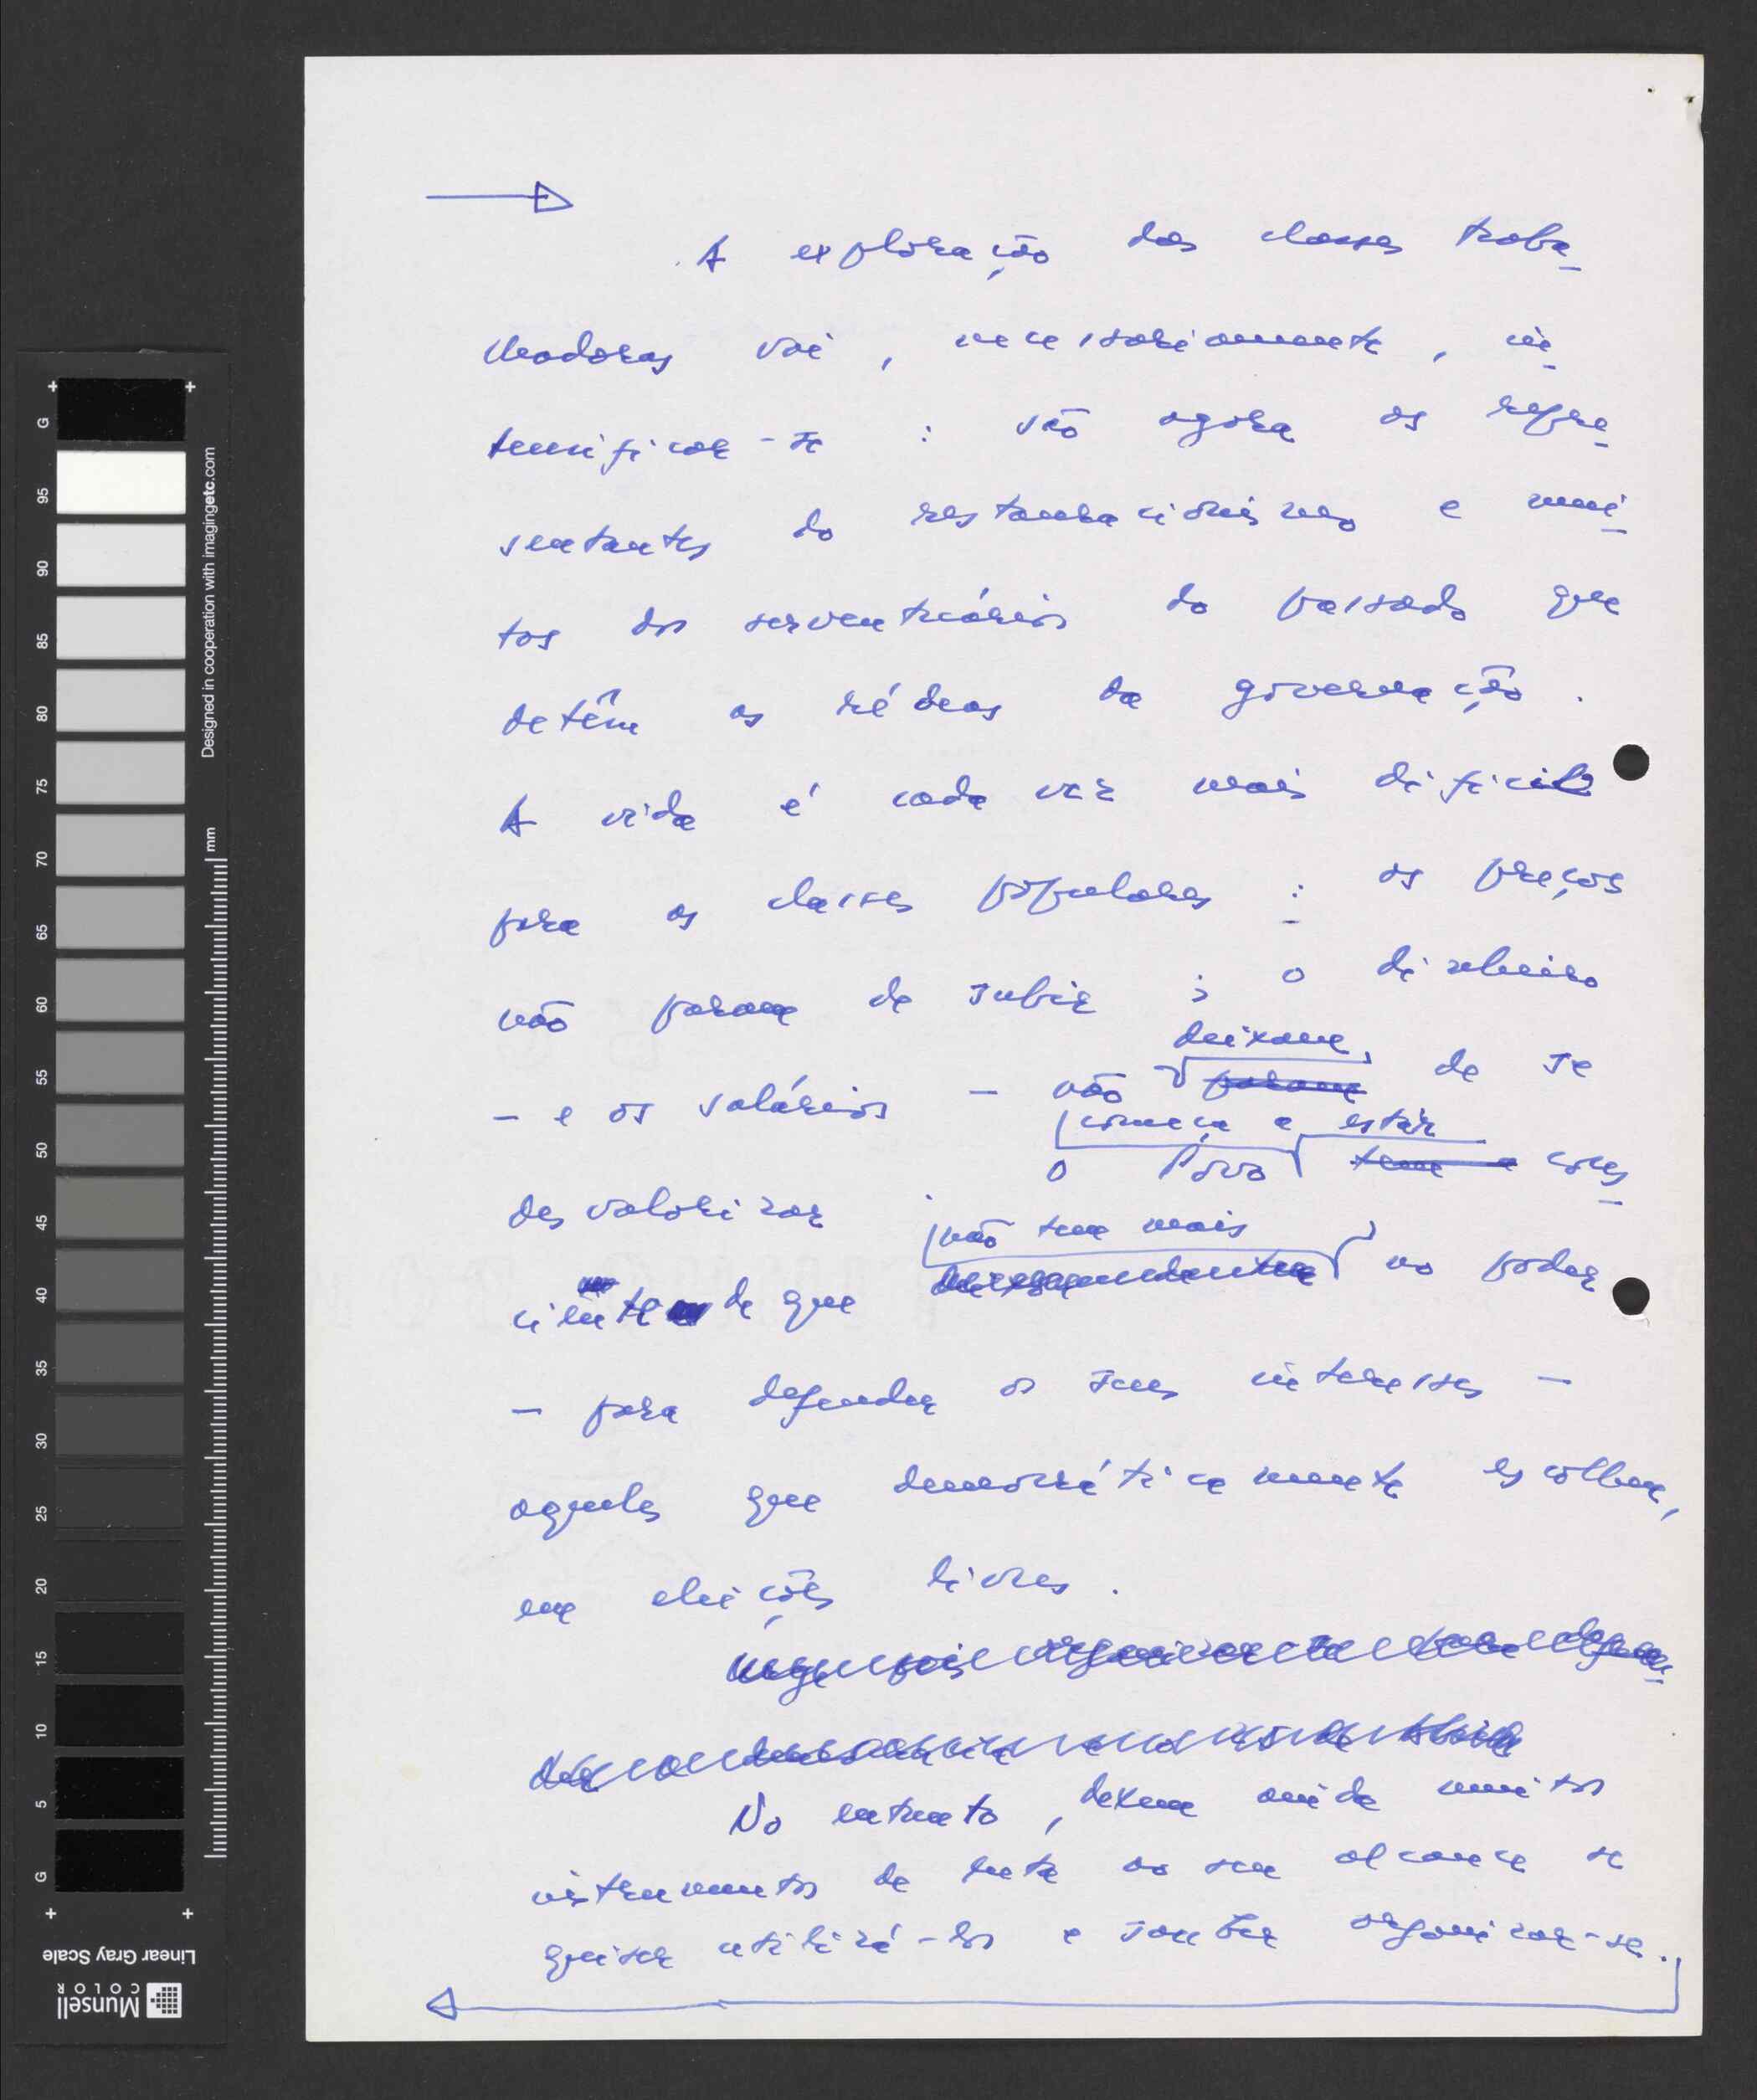 A exploração das classes traba-
lhadoras vai, necessariamente, in-
tensificar-se : são agora os repre-
sentantes do restauracionismo e mui-
tos dos serventuários do passado que
detêm as rédeas da governação.
A vida é cada vez mais difícil
para as classes populares : os preços
não param de subir ; o dinheiro
deixam,
– e os salários – não param de se
começa a estar
o Povo tem a cons-
desvalorizar .
não tem mais
ciente de que no poder
– para defender os seus interesses –
aqueles que democráticamente escolheu,
em eleições livres.
Urge, pois, organizar-se para defen-
der a democracia
No entanto, detem ainda muitos
instrumentos de luta ao seu alcance se
quiser utilizá-los e souber organizar-se.
G 95 90 85 80 75 70 65 60 55 50 45 40 35 30 25 20 15 10 5 G
Designed in cooperation with imagingetc.com
mm
Linear Gray Scale
Munsell
COLOR